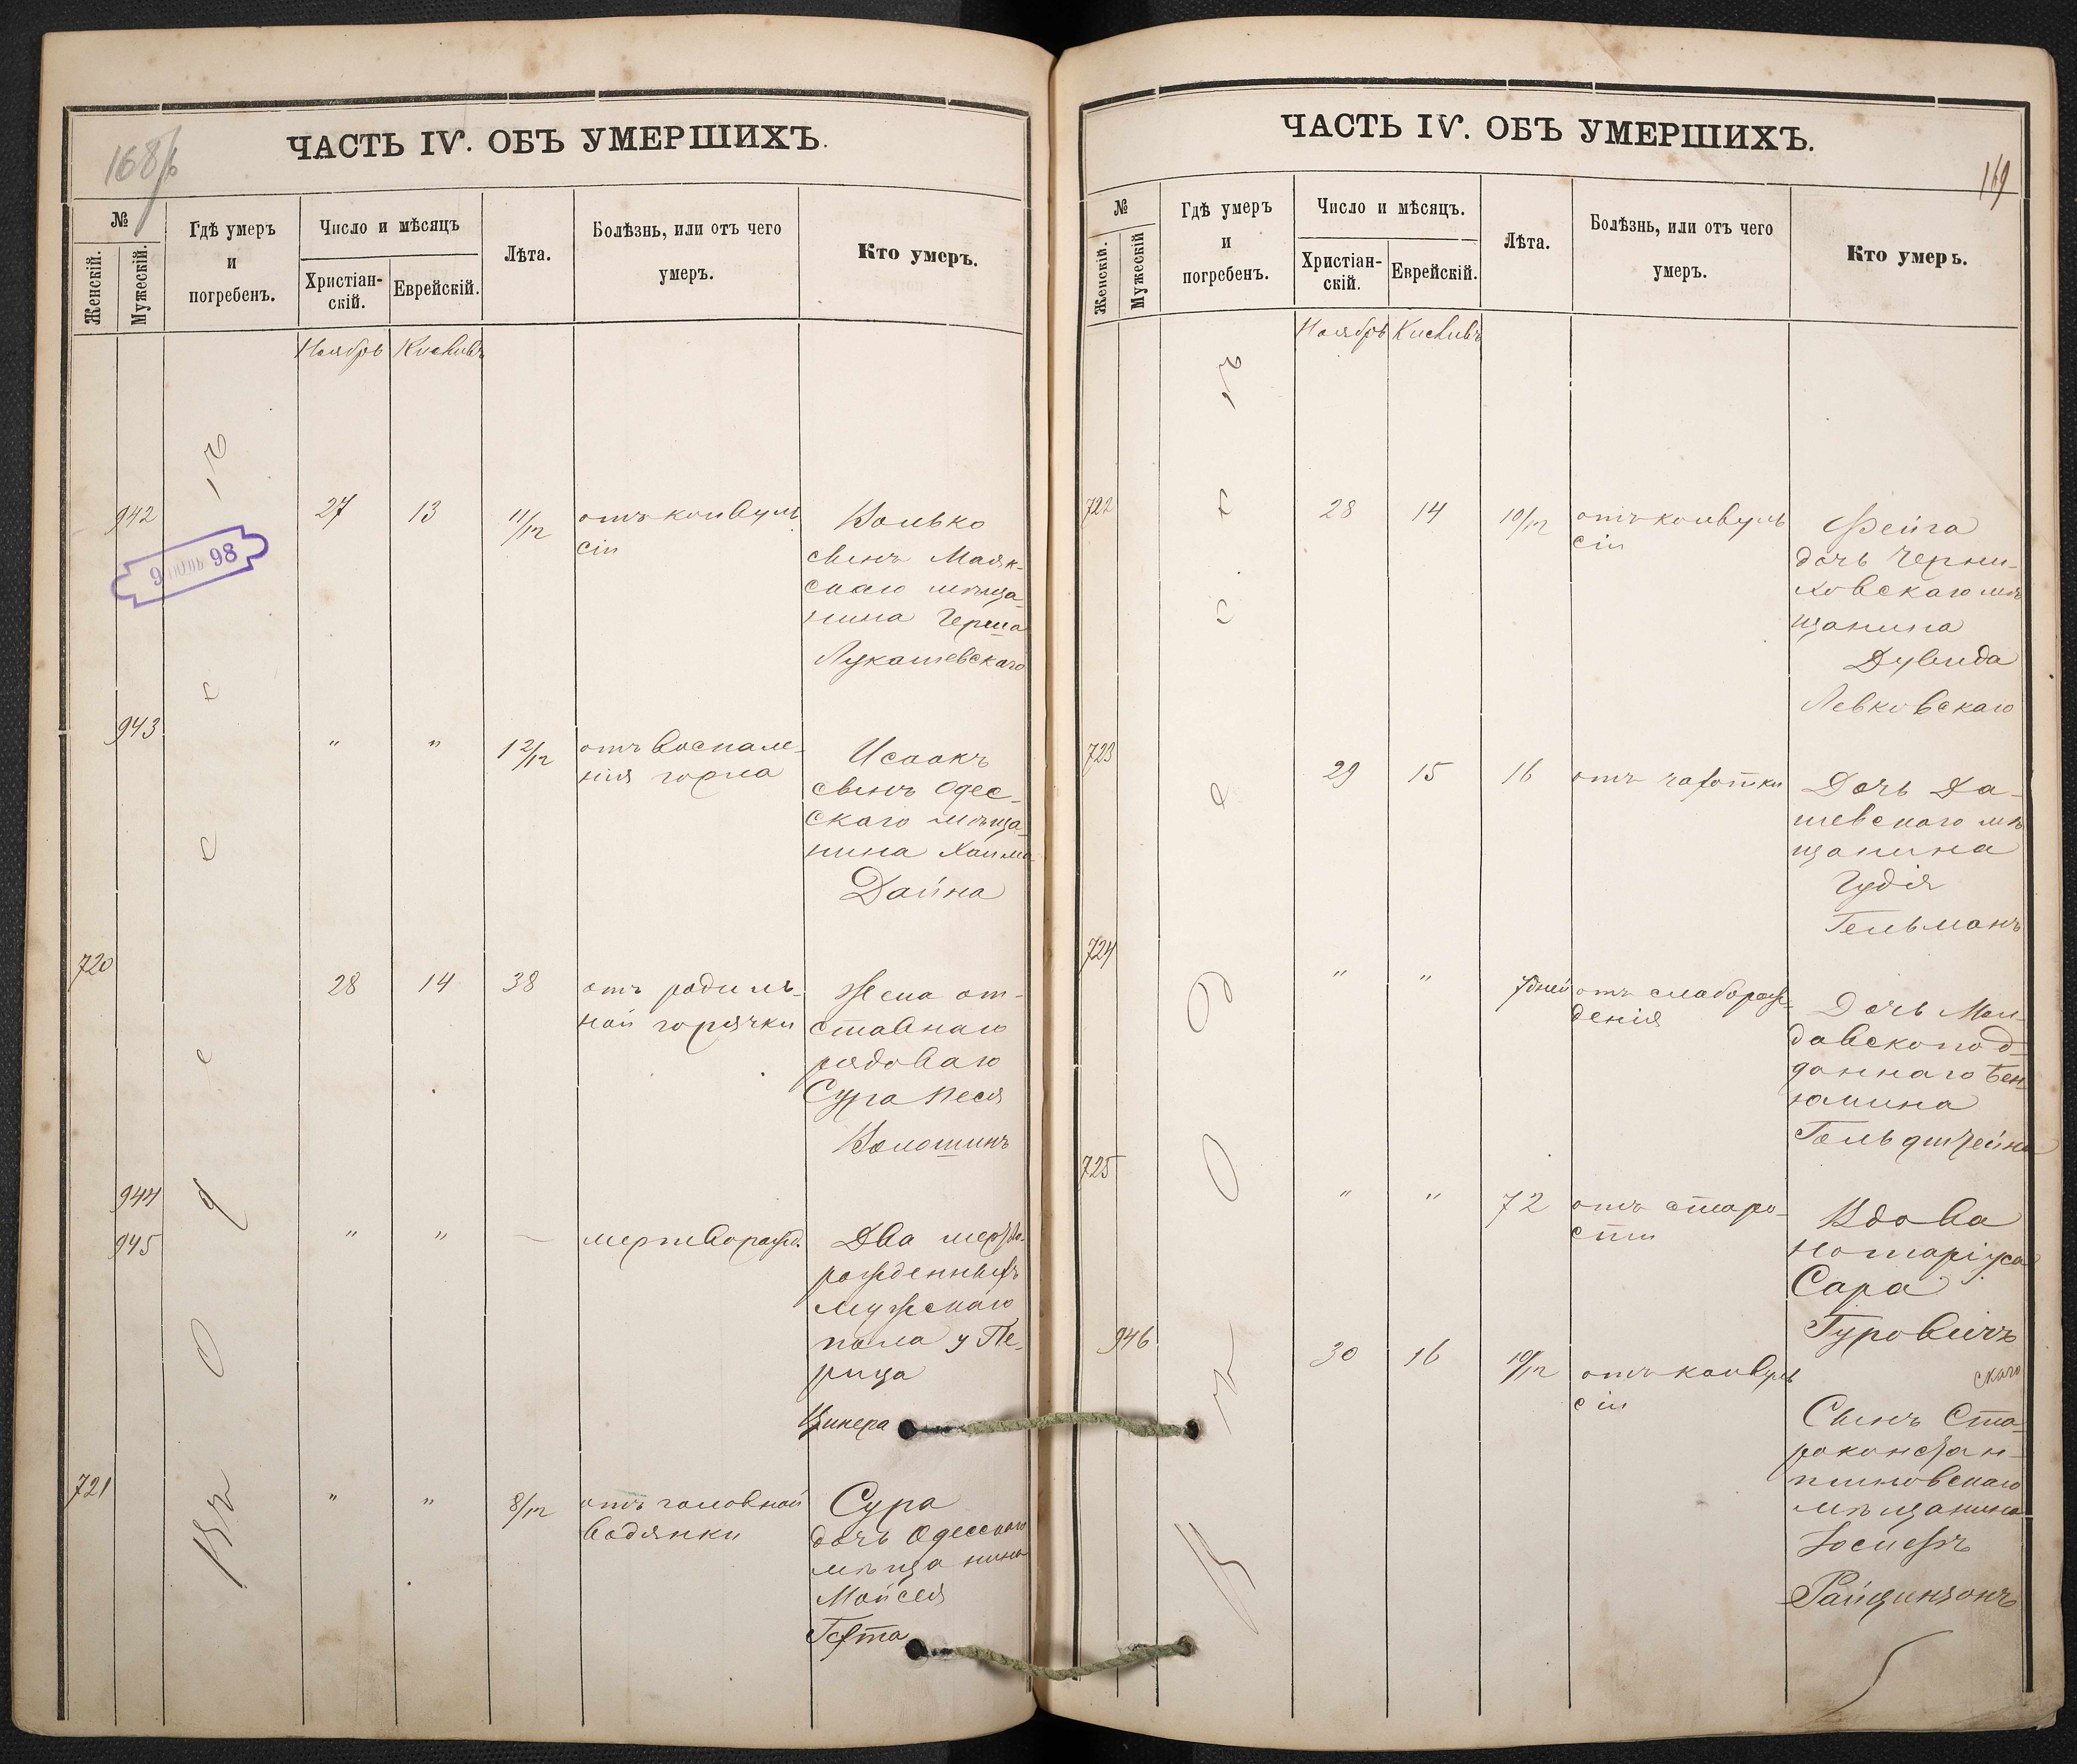 168/б
ЧАСТЬ IV. ОБЪ УМЕРШИХЪ.
№
Женскій.
Мужескій.
Гдѣ умеръ
и
погребенъ.
Число и мѣсяцъ
Христіан-
скій.
Еврейскій.
Лѣта.
Болѣзнь, или отъ чего
умеръ.
Кто умеръ.
Ноябрь Кисливъ
Въ Одессѣ
942 27 13 11/12 отъ конвуль
сіи
Волько
сынъ Маяк-
скаго мѣща-
нина Герша
Лукашевскаго
98
943 " " 1 2/12 отъ воспале-
нія горла
Исаакъ
сынъ Одес-
скаго мѣща-
нина Хаима
Дайна
720 28 14 38 отъ родиль-
ной горячки
Жена от-
ставнаго
рядоваго
Сура Песя
Волошинъ
944
945 " " — мертворожд.
Два мертво-
рожденныхъ
мужескаго
пола у Пе-
рица
Цикера
721 " " 8/12 отъ головной
водянки
Сура
дочь Одесскаго
мѣщанина
Мойсея
Гехта
ЧАСТЬ IV. ОБЪ УМЕРШИХЪ.
169
№
Женскій.
Мужескій
Гдѣ умеръ
и
погребенъ.
Число и мѣсяцъ.
Христіан-
скій.
Еврейскій.
Лѣта.
Болѣзнь, или отъ чего
умеръ.
Кто умеръ.
Ноябрь Кисливъ
Въ Одессѣ
722 28 14 10/12 отъ конвуль
сіи
Фейга
дочь Черни-
ховскаго мѣ
щанина
Дувида
Левковскаго
723 29 15 16 отъ чахотки
Дочь Да-
шевскаго мѣ
щанина
Гудія
Гельманъ
724 " " 7 дней отъ слаборож-
денія
Дочь Мол-
давскопод-
даннаго Бен-
юмина
Гольдштейна
725 " " 72 отъ старо-
сти
Вдова
нотаріуса
Сара
Гуровичъ
946 30 16 10/12 отъ конвуль
сіи
скаго
Сынъ Ста-
роконстан-
тиновскаго
мѣщанина
Іосифъ